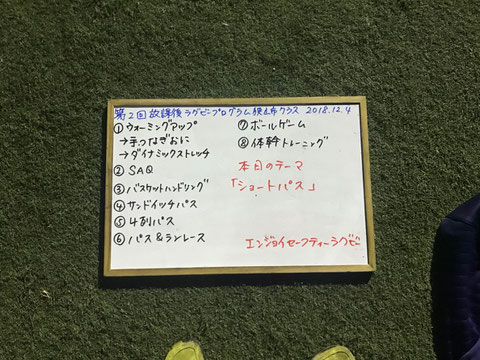 第2回放課後ラグビープログラム狭山市クラス 2018.12.4
①ウォーミングアップ
→手つなぎおに
→ダイナミックストレッチ
②SAQ
③バスケットハンドリング
④サンドイッチパス
⑤4列パス
⑥パス&ランレース
⑦ボールゲーム
⑧体幹トレーニング
本日のテーマ
「ショートパス」
エンジョイセーフティーラグビー